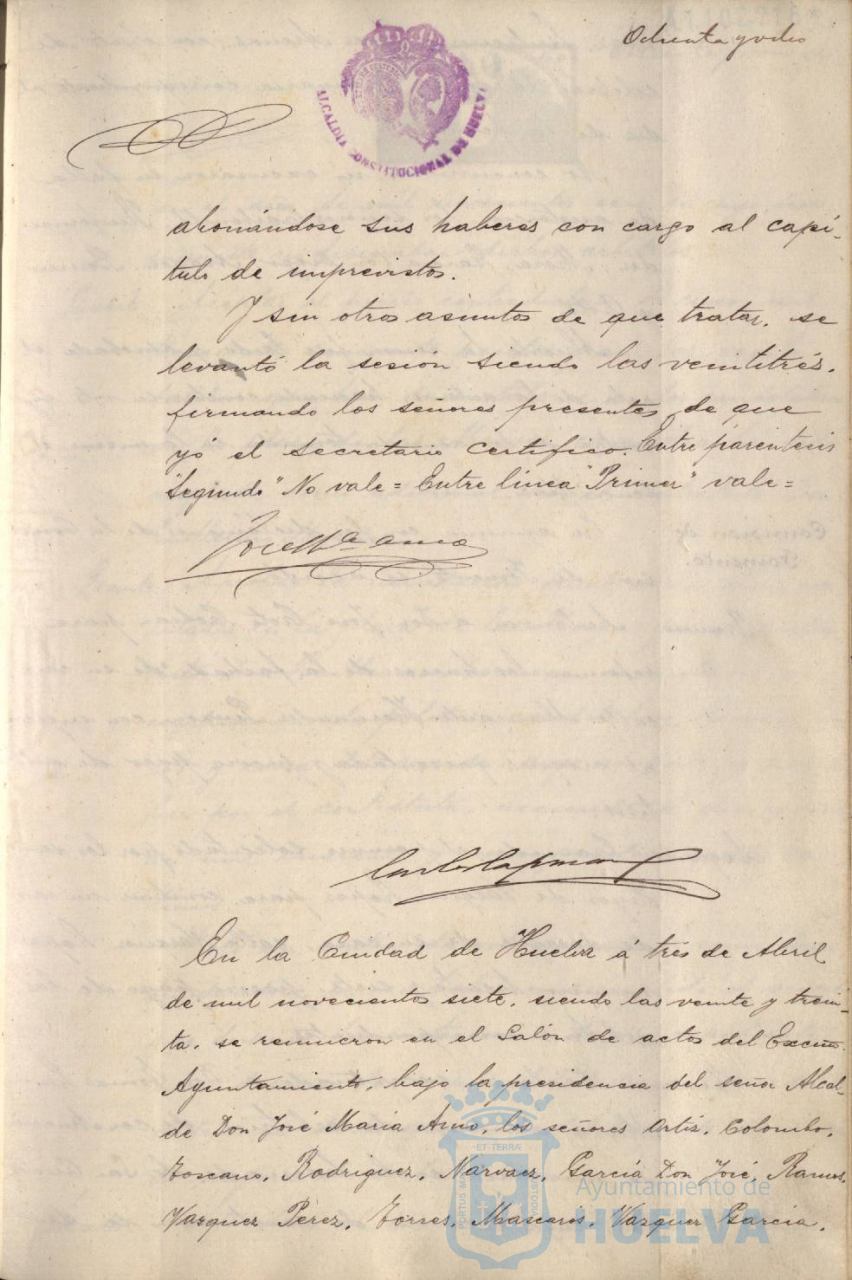 Ochenta y ocho
ALCALDIA CONSTITUCIONAL DE HUELVA
abonándose sus haberes con cargo al capí-
tulo de imprevistos.
Y sin otros asuntos de que tratar, se
levantó la sesión siendo las veintitrés,
firmando los señores presentes, de que
yó el Secretario certifico. Entre parentesis
"Segundo" No vale = Entre línea "Primer" vale =
José Mª Amo
En la Ciudad de Huelva á trés de Abril
de mil novecientos siete, siendo las veinte y trein-
ta, se reunieron en el Salón de actos del Excmo.
Ayuntamiento, bajo la presidencia del señor Alcal-
de Don José María Amo, los señores Ortiz, Colombo,
Toscano, Rodriguez, Narvaez, García Don José, Ramos,
Vazquez Pérez, Torres, Mascarós, Vazquez García,
ET TERRÆ
Ayuntamiento de
HUELVA